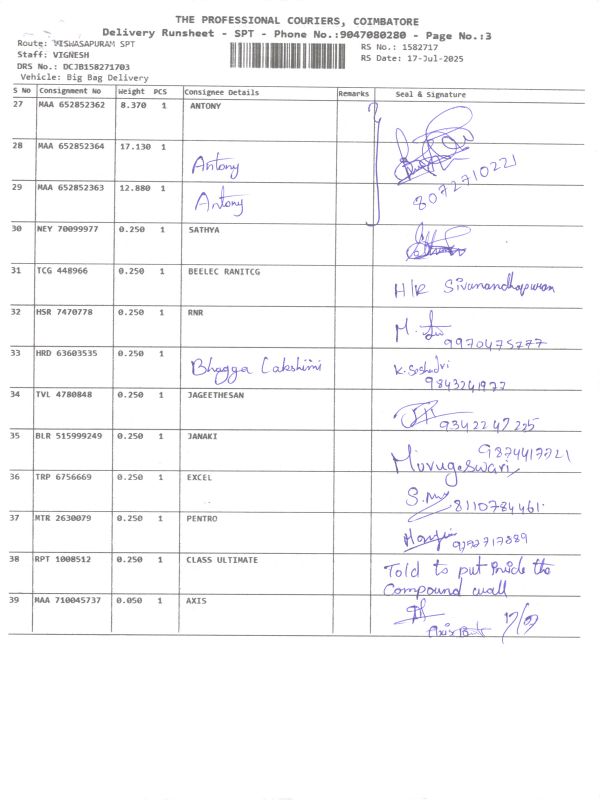 THE PROFESSIONAL COURIERS, COIMBATORE
Delivery Runsheet - SPT - Phone No.:9047080280 - Page No.:3
Route: VISWASAPURAM SPT
RS No.: 1582717
Staff: VIGNESH
RS Date: 17-Jul-2025
DRS No.: DCJB158271703
Vehicle: Big Bag Delivery
S No Consignment No Weight PCS Consignee Details Remarks Seal & Signature
27 MAA 652852362 8.370 1 ANTONY
28 MAA 652852364 17.130 1 Antony
8072710221
29 MAA 652852363 12.880 1 Antony
30 NEY 70099977 0.250 1 SATHYA
31 TCG 448966 0.250 1 BEELEC RANITCG H/R Sivanandhapuram
32 HSR 7470778 0.250 1 RNR M.
9970475777
33 HRD 63603535 0.250 1 Bhagga Lakshimi K. Seshadri
9843241977
34 TVL 4780848 0.250 1 JAGEETHESAN 9342247225
35 BLR 515999249 0.250 1 JANAKI 9874417721
Murugeswari
36 TRP 6756669 0.250 1 EXCEL S.
8110784461
37 MTR 2630079 0.250 1 PENTRO
38 RPT 1008512 0.250 1 CLASS ULTIMATE Told to put inside the
compound wall
39 MAA 710045737 0.050 1 AXIS
Axis 17/07